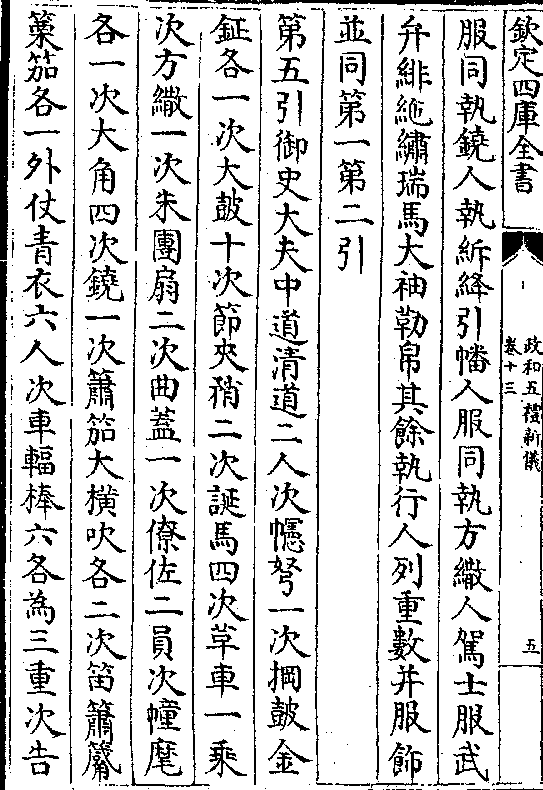 欽定四庫全書
政和五禮新儀
卷十三
五
服同執鐃人執絳引幡人服同執方繖人駕士服武
弁緋絁繡瑞馬大袖勒帛其餘執行人列重數并服飾
並同第一第二引
第五引御史大夫中道清道二人次幰弩一次掆鼓金
鉦各一次大鼓十次節夾矟二次誕馬四次革車一乘
次方繖一次朱團扇二次曲蓋一次僚佐二員次幢麾
各一次大角四次鐃一次簫笳大橫吹各二次笛簫觱
篥笳各一外仗青衣六人次車輻棒六各為三重次告